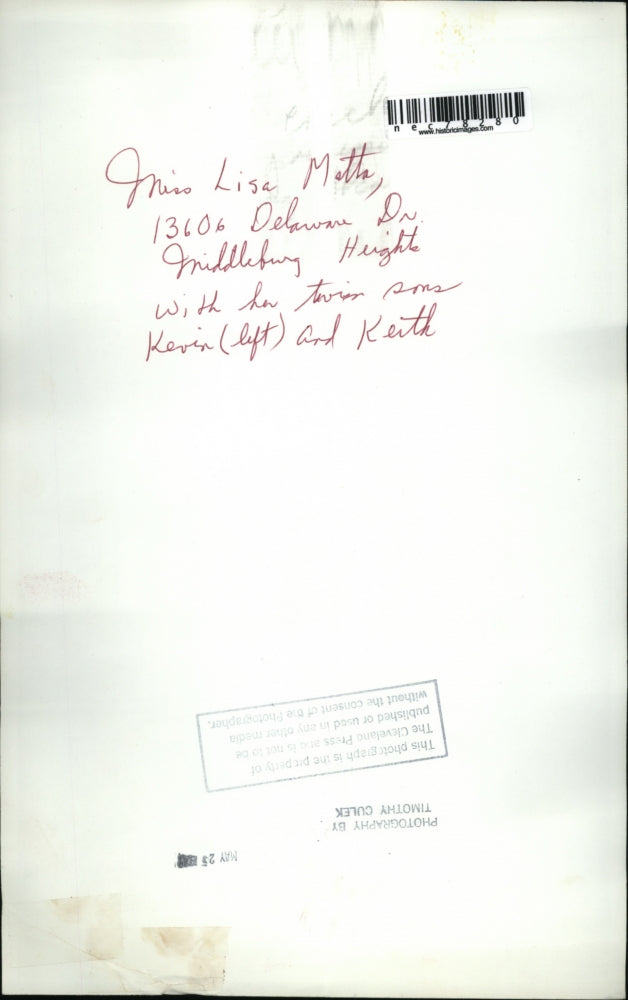 nec78280
www.historicimages.com
Miss Lisa Motta,
13606 Delaware Dr.
Middleburg Heights
with her twin sons
Kevin (left) and Keith
This photograph is the property of
The Cleveland Press and is not to be
published or used in any other media
without the consent of the Photographer.
PHOTOGRAPHY BY
TIMOTHY CULEK
MAY 25